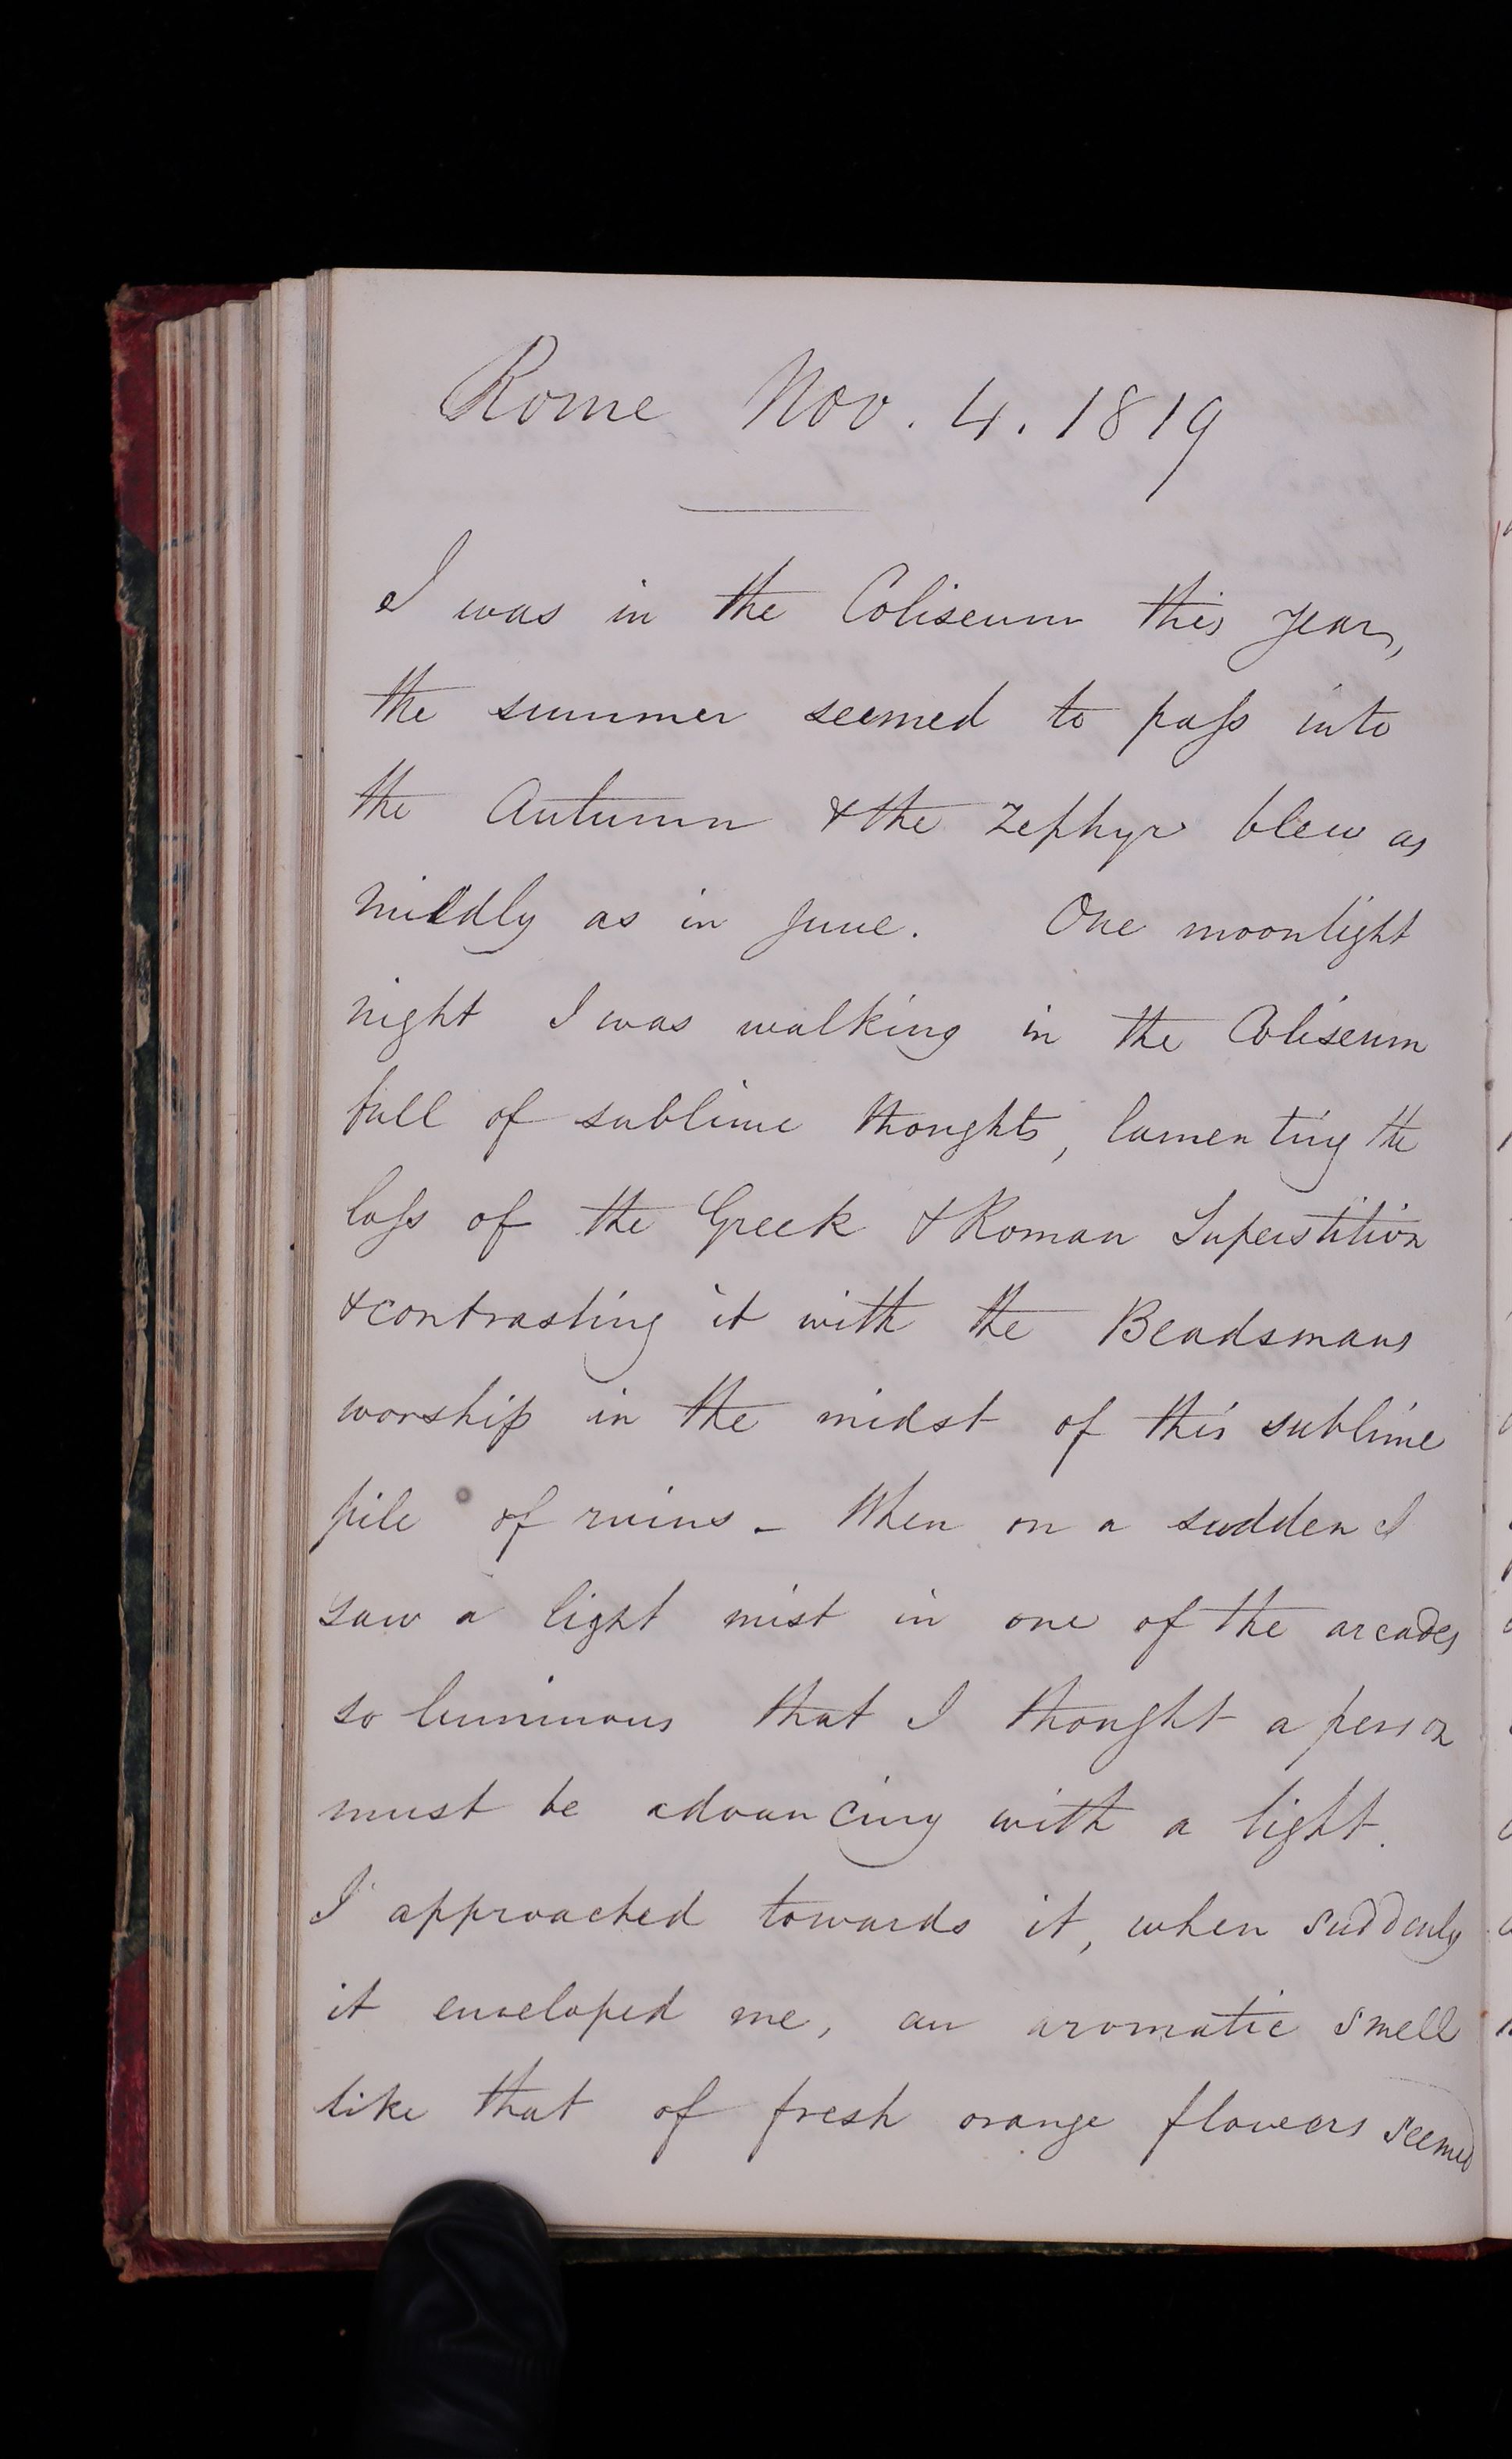 Rome Nov. 4. 1819
I was in the Coliseum this year,
the summer seemed to pass into
the Autumn & the Zephyr blew as
mildly as in June. One moonlight
night I was walking in the Coliseum
full of sublime thoughts, lamenting the
loss of the Greek & Roman Superstition
& contrasting it with the Beadsmans
worship in the midst of this sublime
pile of ruins – When on a sudden I
saw a light mist in one of the arcades
so luminous that I thought a person
must be advancing with a light.
I approached towards it, when suddenly
it enveloped me, an aromatic smell
like that of fresh orange flowers seemed